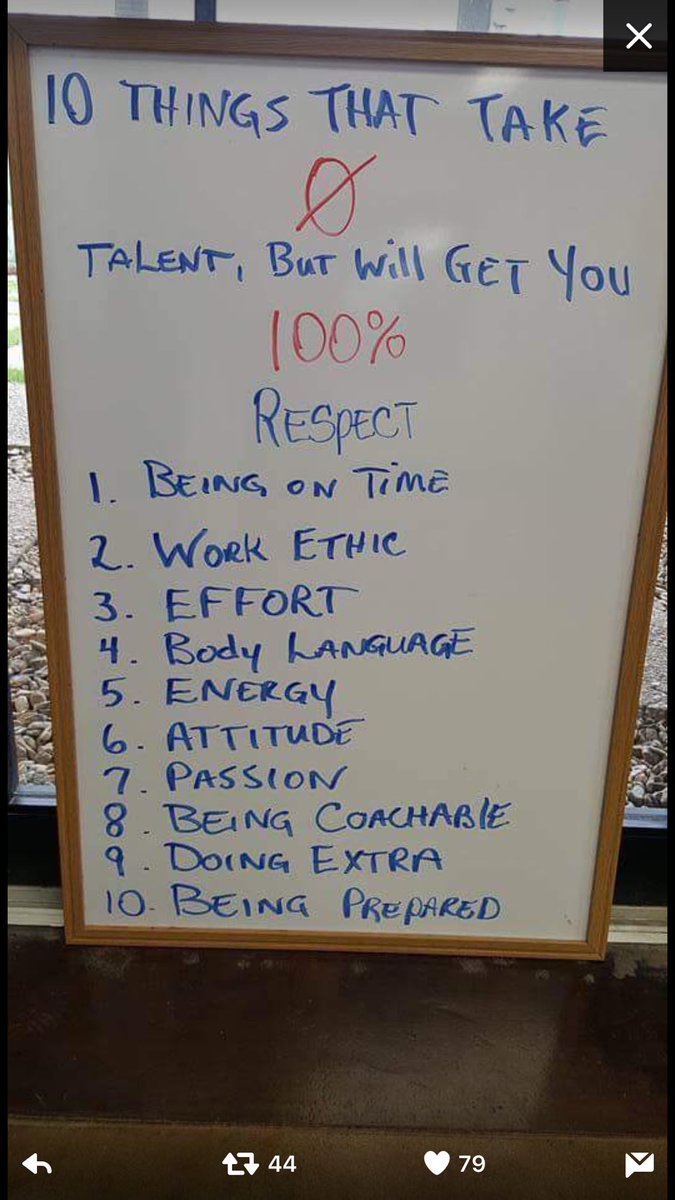 10 THINGS THAT TAKE
0
TALENT, BUT Will GET YOU
100%
RESPECT
1. BEING ON TIME
2. WORK ETHIC
3. EFFORT
4. Body LANGUAGE
5. ENERGY
6. ATTITUDE
7. PASSION
8. BEING COACHABlE
9. DOING EXTRA
10. BEING PREPARED
44 79